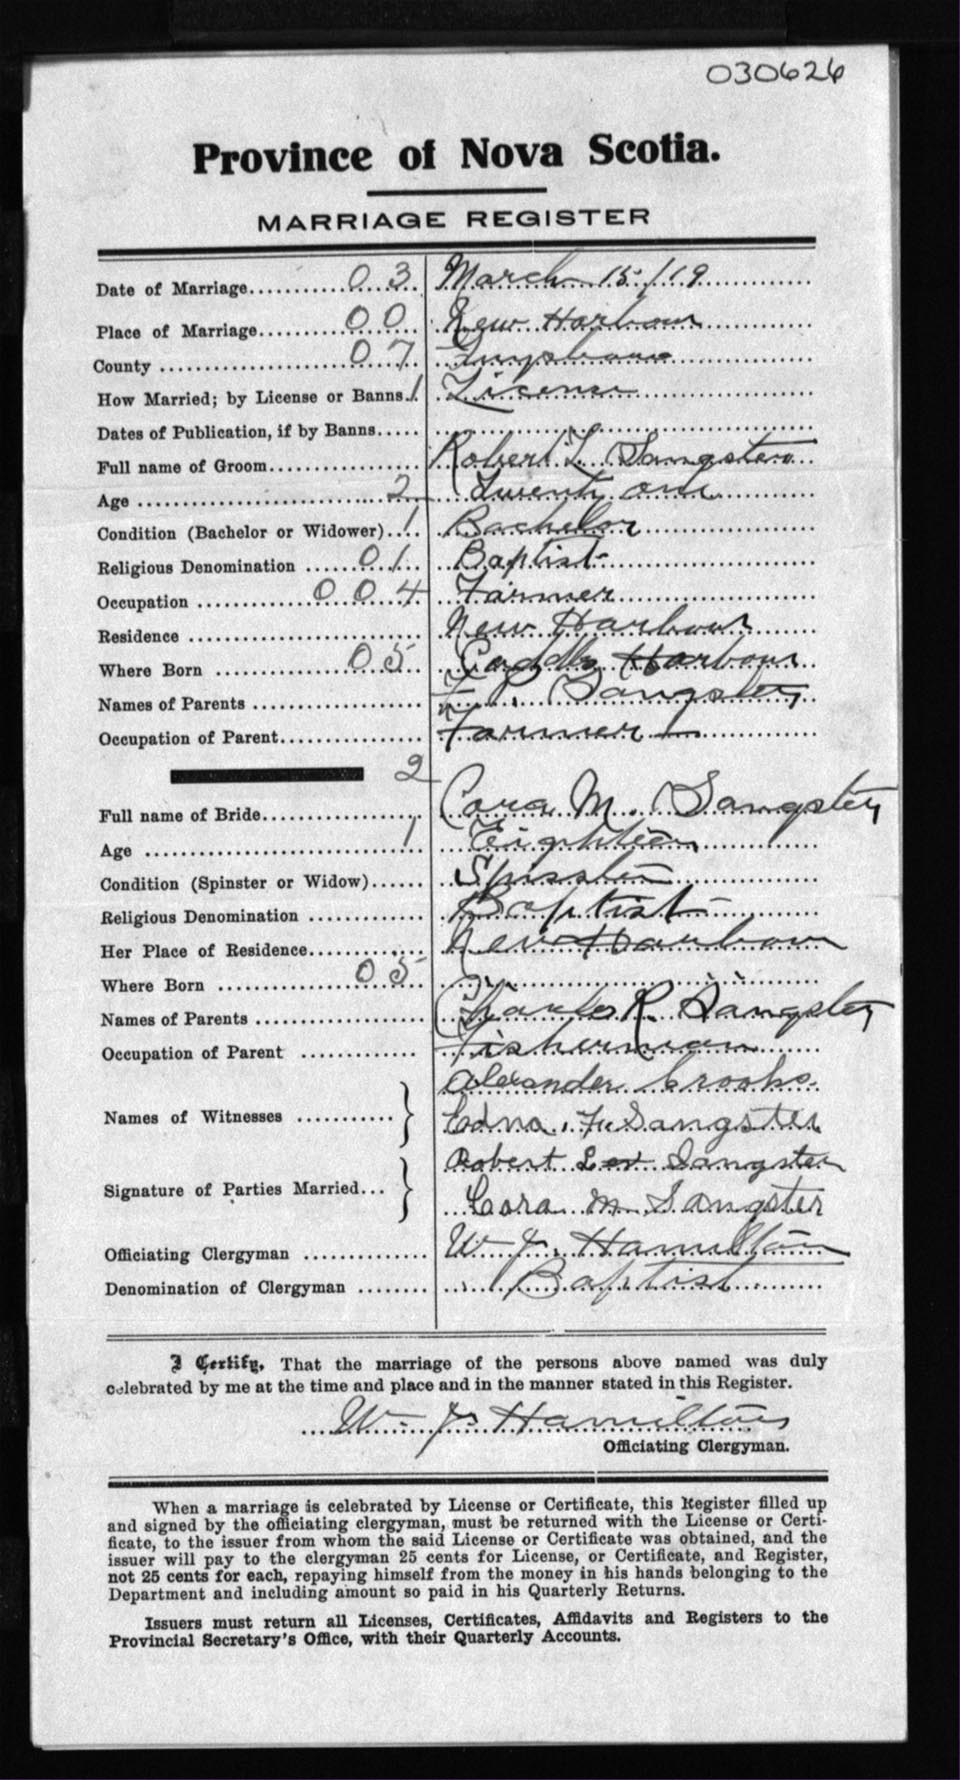 030626
Province of Nova Scotia.
MARRIAGE REGISTER
Date of Marriage 03 March 15/19
Place of Marriage 00 New Harbour
County 07 Guysboro
How Married; by License or Banns. 1 License
Dates of Publication, if by Banns
Full name of Groom Robert L. Sangster
Age 2 Twenty one
Condition (Bachelor or Widower) 1 Bachelor
Religious Denomination 01 Baptist
Occupation 004 Farmer
Residence New Harbour
Where Born 05 Harbour
Names of Parents P. Sangster
Occupation of Parent Farmer
2
Full name of Bride Cora M. Sangster
Age 1 Eighteen
Condition (Spinster or Widow) Spisster
Religious Denomination Baptist
Her Place of Residence New Harbour
Where Born 05 " "
Names of Parents Charles R. Sangster
Occupation of Parent Fisherman
Alexander Crooks
Names of Witnesses }
Edna. F. Sangster
Robert Lev Sangster
Signature of Parties Married... }
Cora M Sangster
Officiating Clergyman W. J. Hamilton
Denomination of Clergyman Baptist
I Certify, That the marriage of the persons above named was duly
celebrated by me at the time and place and in the manner stated in this Register.
W. J. Hamilton
Officiating Clergyman.
When a marriage is celebrated by License or Certificate, this Register filled up
and signed by the officiating clergyman, must be returned with the License or Certi-
ficate, to the issuer from whom the said License or Certificate was obtained, and the
issuer will pay to the clergyman 25 cents for License, or Certificate, and Register,
not 25 cents for each, repaying himself from the money in his hands belonging to the
Department and including amount so paid in his Quarterly Returns.
Issuers must return all Licenses, Certificates, Affidavits and Registers to the
Provincial Secretary's Office, with their Quarterly Accounts.